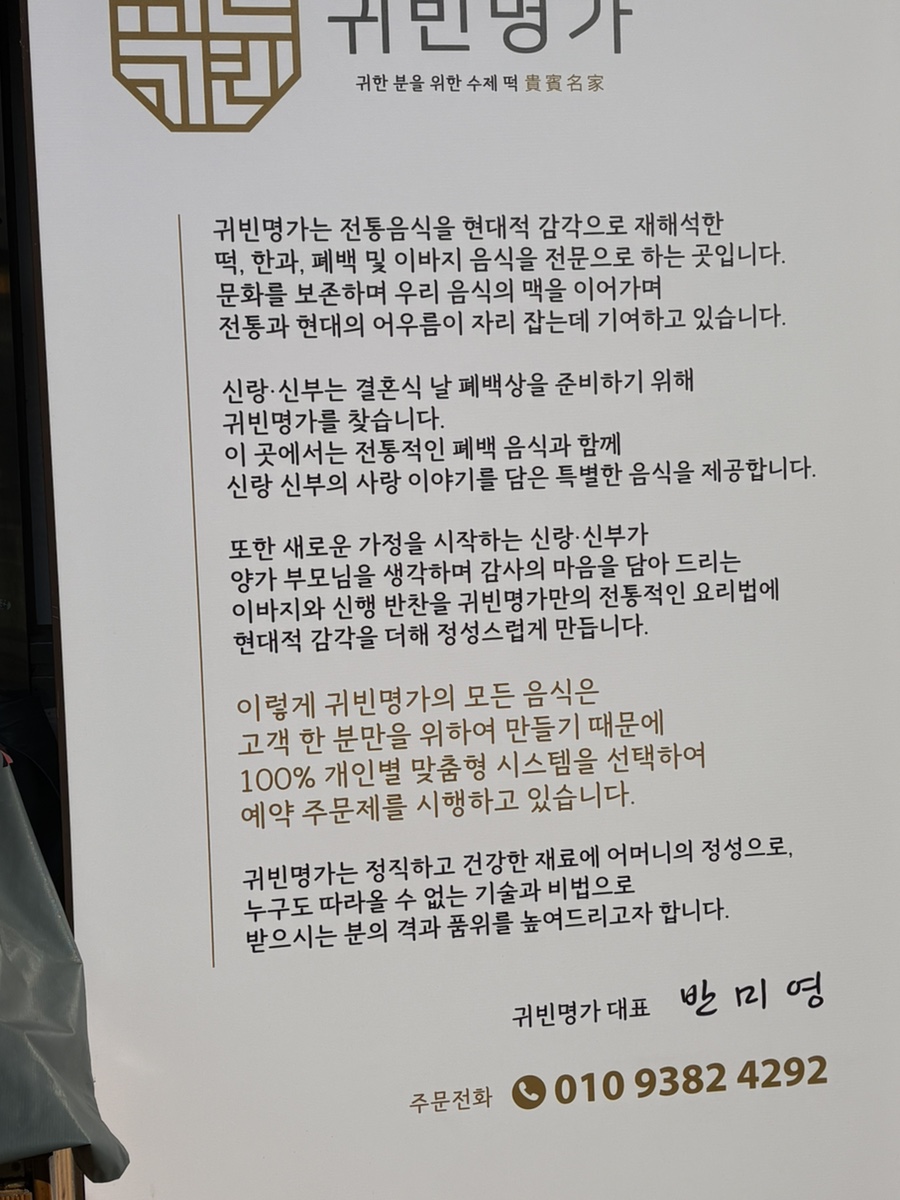 귀빈명가
귀한 분을 위한 수제 떡 貴賓名家
귀빈명가는 전통음식을 현대적 감각으로 재해석한
떡, 한과, 폐백 및 이바지 음식을 전문으로 하는 곳입니다.
문화를 보존하며 우리 음식의 맥을 이어가며
전통과 현대의 어우름이 자리 잡는데 기여하고 있습니다.
신랑·신부는 결혼식 날 폐백상을 준비하기 위해
귀빈명가를 찾습니다.
이 곳에서는 전통적인 폐백 음식과 함께
신랑 신부의 사랑 이야기를 담은 특별한 음식을 제공합니다.
또한 새로운 가정을 시작하는 신랑·신부가
양가 부모님을 생각하며 감사의 마음을 담아 드리는
이바지와 신행 반찬을 귀빈명가만의 전통적인 요리법에
현대적 감각을 더해 정성스럽게 만듭니다.
이렇게 귀빈명가의 모든 음식은
고객 한 분만을 위하여 만들기 때문에
100% 개인별 맞춤형 시스템을 선택하여
예약 주문제를 시행하고 있습니다.
귀빈명가는 정직하고 건강한 재료에 어머니의 정성으로,
누구도 따라올 수 없는 기술과 비법으로
받으시는 분의 격과 품위를 높여드리고자 합니다.
귀빈명가 대표 반미영
주문전화 010 9382 4292